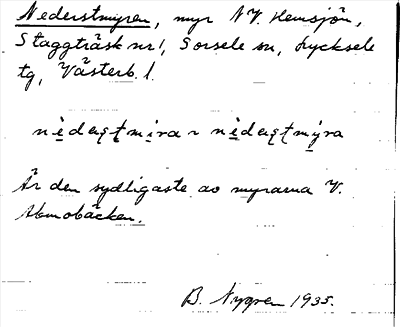 Nederstmyren, myr NV. Hemsjön,
Staggträsk nr 1, Sorsele sn, Lycksele
tg, Västerb. l.
Är den sydligaste av myrarna V.
Abmobäcken.
B. Nygren 1935.